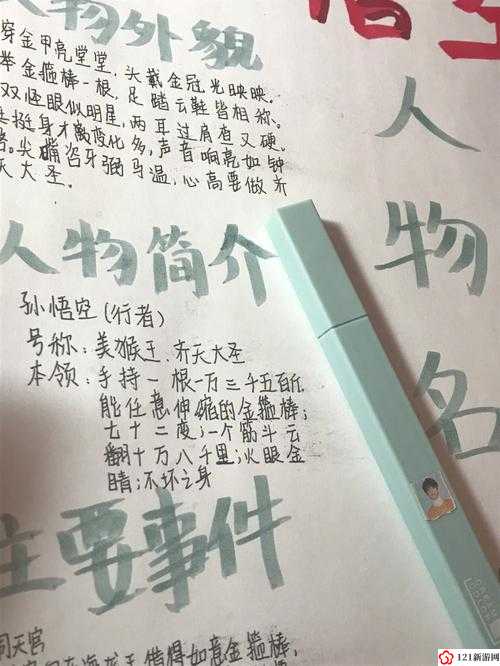 人物外貌
穿金甲亮堂堂,头戴金冠光映映.
举金箍棒一根,足踏云鞋皆相称.
双怪眼似明星,两耳过肩查又硬.
挺挺身才变化多,声音响亮如钟
尖嘴咨牙弼马温,心高要做齐
天大圣.
人物简介
孙悟空(行者)
号称:美猴王、齐天大圣
本领:手持一根一万三千五百斤
能任意伸缩的金箍棒;
七十二变;一个筋斗云
翻十万八千里;火眼金
睛;不坏之身
主要事件
闹天宫
海龙王借得如意金箍棒,
人物名
121新游网